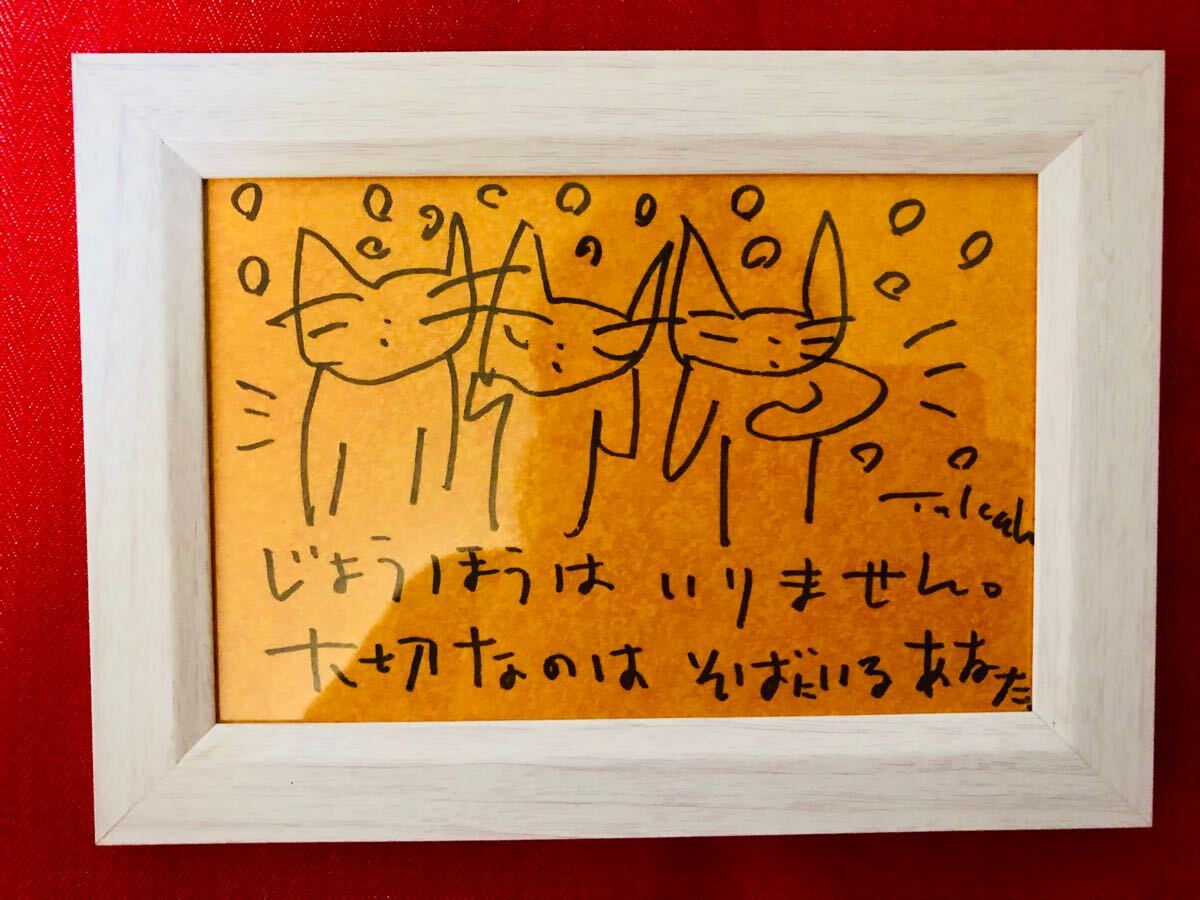 じょうほうは いりません。
大切なのは そばにいるあなた。